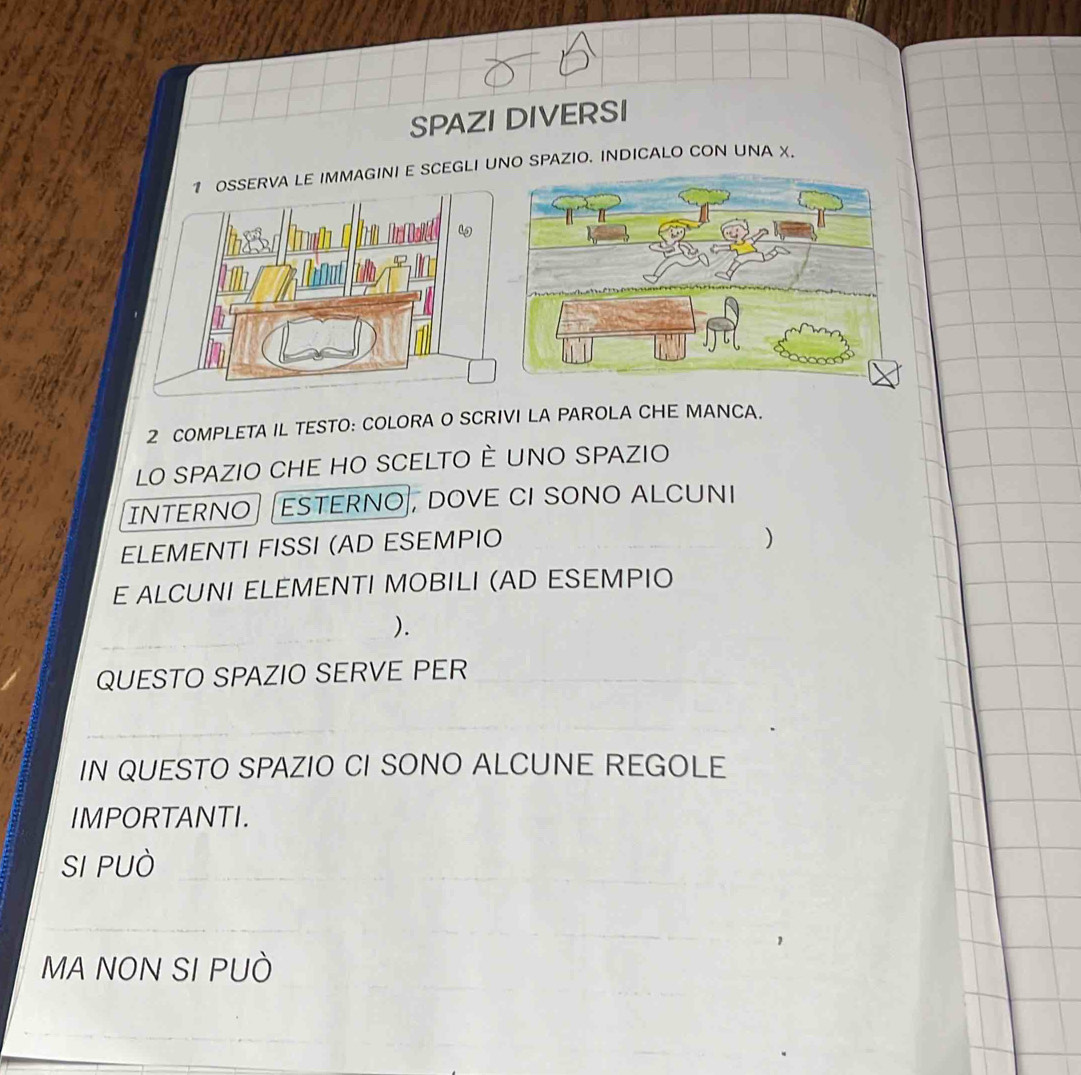 SPAZI DIVERSI
1 OSSERVA LE IMMAGINI E SCEGLI UNO SPAZIO. INDICALO CON UNA X.
2 COMPLETA IL TESTO: COLORA O SCRIVI LA PAROLA CHE MANCA.
LO SPAZIO CHE HO SCELTO È UNO SPAZIO
INTERNO ESTERNO, DOVE CI SONO ALCUNI
ELEMENTI FISSI (AD ESEMPIO )
E ALCUNI ELEMENTI MOBILI (AD ESEMPIO
).
QUESTO SPAZIO SERVE PER
.
IN QUESTO SPAZIO CI SONO ALCUNE REGOLE
IMPORTANTI.
SI PUÒ
,
MA NON SI PUÒ
.